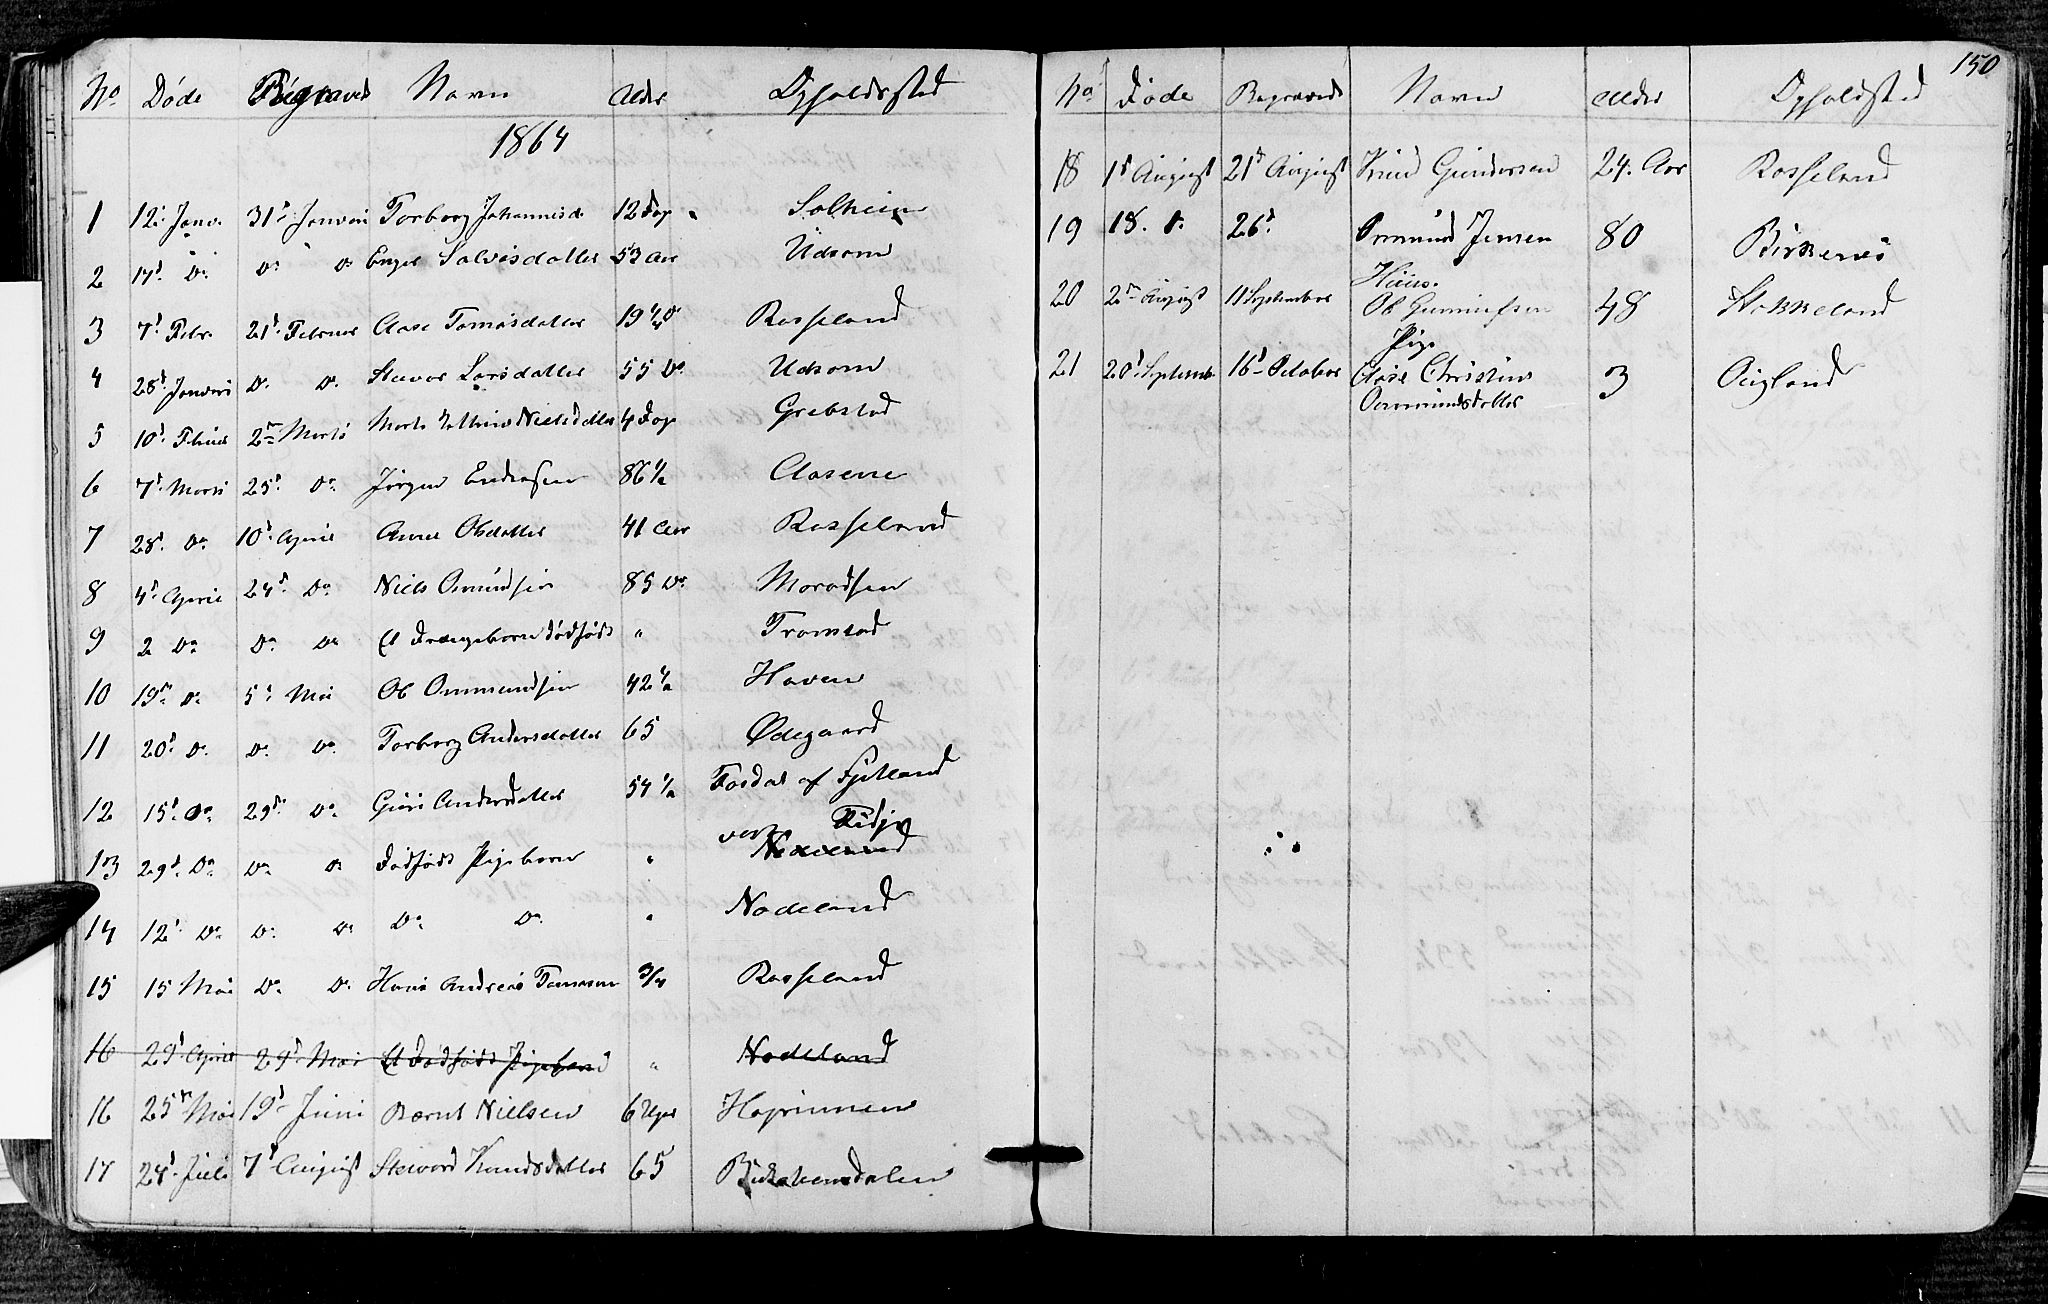 No Døde Begravede Navn Alder Opholdssted
1864
1 12. Janv. 31d Januari Torborg Johannisd. 12 Dage Solheim
2 17d Do Do Do Engel Salvisdatter 53 Aar Udsom
3 7d Febr. 21d Februar Aase Tomasdatter 19 1/4 Do Rosseland
4 28d Januari Do Do. Sievor Larsdatter 55 Do Udsom
5 10d Februar 2den Marts Nielsdatter 4 Dage Grebstad
6 7d Marts 25d Do Jørgen Endresen 86 1/2 Aasene
7 28d Do 10d April Anne Olsdatter 41 Aar Rosseland
8 4d April 24d Do Niels Omundsen 85 Do
9 2 Do Do Do Et Drængebarn dødfødt " Tromstad
10 19de Do 5d Mai Ole Ommundsen 42 1/2 Haven
11 20d Do. Do. Do. Torborg Andersdatter 65 Ødegaard
12 15d Do 29d Do Guri Andersdatter 54 1/2 af Fjelland
13 29d Do Do Do Dødfødt Pigebarn "
14 12d Do Do Do Do Do "
Nodeland
15 15 Mai Do Do Hans Andreas Tomasen 3/4 Rosseland
16 29d April 29d Mai Et dødfødt Pigebarn " Nodeland
16 25de Mai 19d Juni Bernt Nielsen 6 Uger
17 24d Juli 7d August Sievord Knudsdatter 65
150
No Døde Begravede Navn Alder Opholdsted
18 1d August 21d August Knud Gundersen 24. Aar Rosseland
19 18. d. 26d Ommund Jensen 80 Birkenes
Huus.
20 2den August 11 September Ole Gunnufsen 48 Stokkeland
Pige
21 20d September 16d October Aase Christine 3 Augland
Ommundsdatter